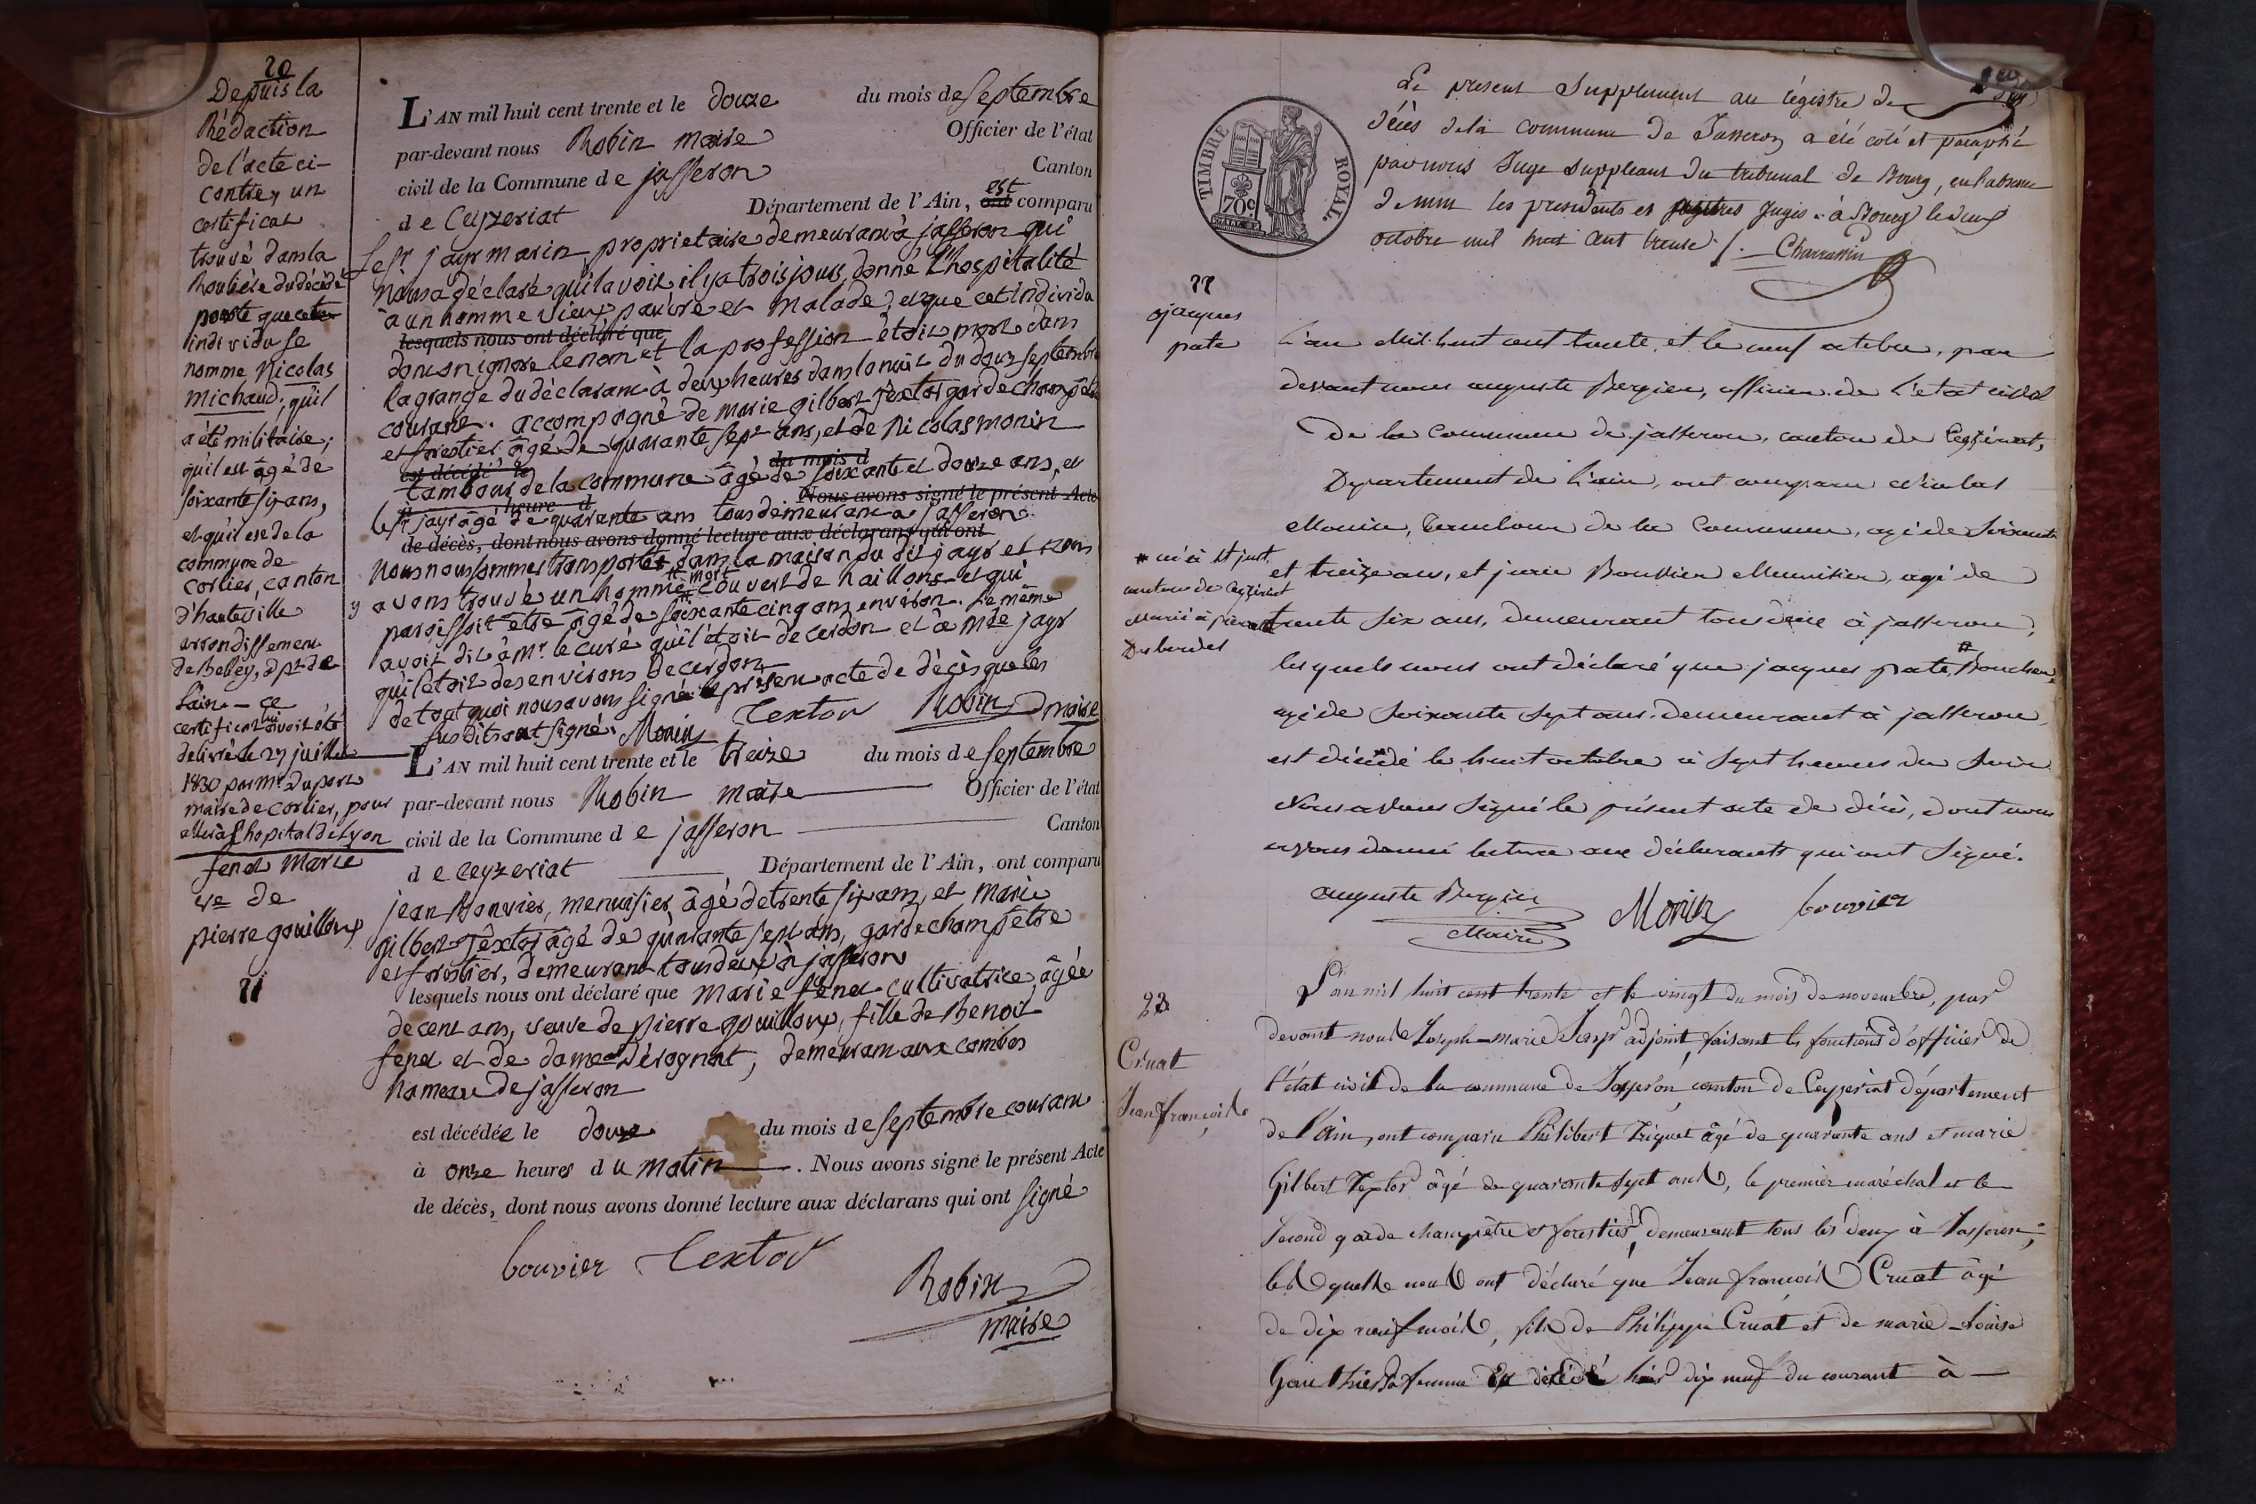 20
Depuis la
Rédaction
de l'acte ci-
contre, un
certificat
trouvé dans la
Roulière du décédé
porte que cet
individu se
nomme Nicolas
michaud; qu'il
a été militaire;
qu'il est âgé de
soixante six ans,
et qu'il est de la
commune de
corlier, canton
d'hauteville
arrondissement
de Belley, dpt de
l'ain - ce
certificat lui avoit été
délivré le 27 juillet
1830 par mr duport
maire de corlier, pour
aller à l'hopital de Lyon
L'AN mil huit cent trente et le douze du mois de septembre
par-devant nous Robin maire Officier de l'état
civil de la Commune de jasseron Canton
de Ceyzeriat Département de l'Ain, ont est comparu
le sr jayr marin proprietaire demeurant à jasseron qui
nous a déclaré qu'il avoit il y a trois jours, donné l'hospitalité
à un homme vieux pauvre et malade, et que cet individu
lesquels nous ont déclaré que
dont on ignore le nom et la profession étoit mort dans
la grange du déclarant à deux heures dans la nuit du douze septembre
courant. accompagné de marie gilbert Textor garde champêtre
et forestier âgé de quarante sept ans, et de Nicolas monin
est décédé le du mois d
tambour de la commune âgé de soixante et douze ans, et
à heure d Nous avons signé le présent Acte
le sr jayr âgé de quarante ans tous demeurant à jasseron.
de décès, dont nous avons donné lecture aux déclarans qui ont
nous nous sommes transportés dans la maison du dit jayr et nous
y avons trouvé un homme mort couvert de haillons et qui
paroissoit etre âgé de soixante cinq ans environ. Le même
avoit dit à mr le curé qu'il étoit de cerdon et à mde jayr
qu'il étoit des environs de cerdon
de tout quoi nous avons signé le présent acte de décès que les
susdits ont signé. Monin Textor Robin maire
fenet Marie
ve de
pierre gouilloux
21
L'AN mil huit cent trente et le treize du mois de septembre
par-devant nous Robin maire Officier de l'état
civil de la Commune de jasseron Canton
de ceyzeriat Département de l'Ain, ont comparu
jean Bouvier, menuisier, âgé de trente six ans, et marie
gilbert Textor âgé de quarante sept ans, garde champêtre
et forestier, demeurant tous deux à jasseron
lesquels nous ont déclaré que marie fenet cultivatrice, âgée
de cent ans, veuve de pierre gouilloux, fille de Benoit
fenet et de dame Dérognat, demeurant aux combes
hameau de jasseron
est décédée le douze du mois de septembre courant
à onze heures du matin. Nous avons signé le présent Acte
de décès, dont nous avons donné lecture aux déclarans qui ont signé
bouvier Textor
Robin
maire
TIMBRE ROYAL
70c
Le present supplement au régistre de
décès de la commune de Jasseron a été coté et paraphé
par nous Juge suppleant du tribunal de Bourg, en l'absence
de mm les presidents et juges à Bourg le deux
octobre mil huit cent trente. Charrassin
22
jacques
pate
L'an mil huit cent trente et le neuf octobre, par
devant nous auguste Bergier, officier de l'etat civil
De la commune de jasseron, canton de Ceyzériat,
Departement de l'ain, ont comparu nicolas
Monin, tambour de la commune, agé de soixante
et treize ans, et jean Bouvier Menuisier, agé de
trente six ans, demeurant tous deux à jasseron,
lesquels nous ont déclaré que jacques pate, Boucher,
agé de soixante sept ans, demeurant à jasseron,
est décédé le huit octobre à sept heures du soir
Nous avons signé le présent acte de décès, dont nous
avons donné lecture aux déclarants qui ont signé.
né à st just
canton de ceyzeriat
marié à
Desbordes
auguste Bergier
Maire
Monin bouvier
23
Cruat
Jean françois
L'an mil huit cent trente et le vingt du mois de novembre, par
devant nous Joseph-marie Jayr adjoint, faisant les fonctions d'officier de
l'état civil de la commune de Jasseron, canton de Ceyzeriat département
de l'Ain, ont comparu Philibert Triquet âgé de quarante ans et marie
Gilbert Textor âgé de quarante sept ans, le premier maréchal et le
second garde champêtre et forestier, demeurant tous les deux à Jasseron,
lesquels nous ont déclaré que Jean françois Cruat âgé
de dix neuf mois, fils de Philippe Cruat et de marie-Louise
Gauthier sa femme est décédé hier dix neuf du courant à